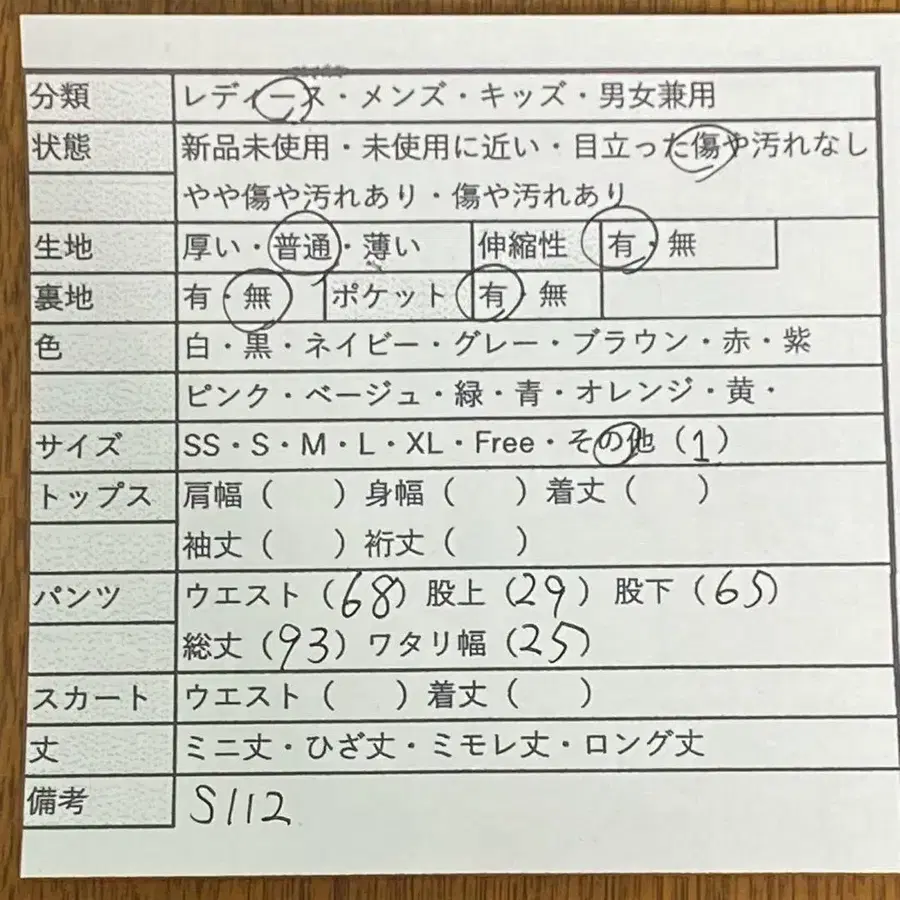 分類 レディース・メンズ・キッズ・男女兼用
状態 新品未使用・未使用に近い・目立った傷や汚れなし
やや傷や汚れあり・傷や汚れあり
生地 厚い・普通・薄い 伸縮性 有・無
裏地 有・無 ポケット 有・無
色 白・黒・ネイビー・グレー・ブラウン・赤・紫
ピンク・ベージュ・緑・青・オレンジ・黄・
サイズ SS・S・M・L・XL・Free・その他（1）
トップス 肩幅（ ）身幅（ ）着丈（ ）
袖丈（ ）裄丈（ ）
パンツ ウエスト（68）股上（29）股下（65）
総丈（93）ワタリ幅（25）
スカート ウエスト（ ）着丈（ ）
丈 ミニ丈・ひざ丈・ミモレ丈・ロング丈
備考 S112